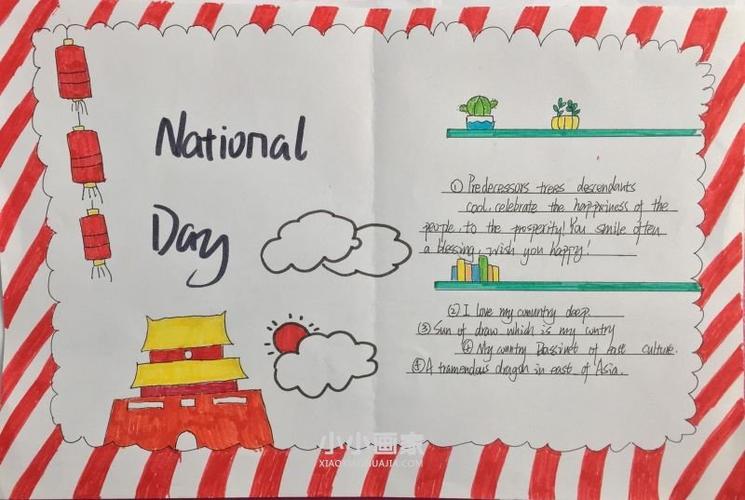 National
Day
① Predecessors trees descendants
cool, celebrate the happiness of the
people, to the prosperity! You smile often
a blessing, wish you happy!
② I love my country deep
③ Sun of draw which is my cuntry
④ My cuntry Bassinet of east culture.
⑤ A tramendous dragon in east of Asia.
小小画家
XIAOXIAOHUAJIA.COM